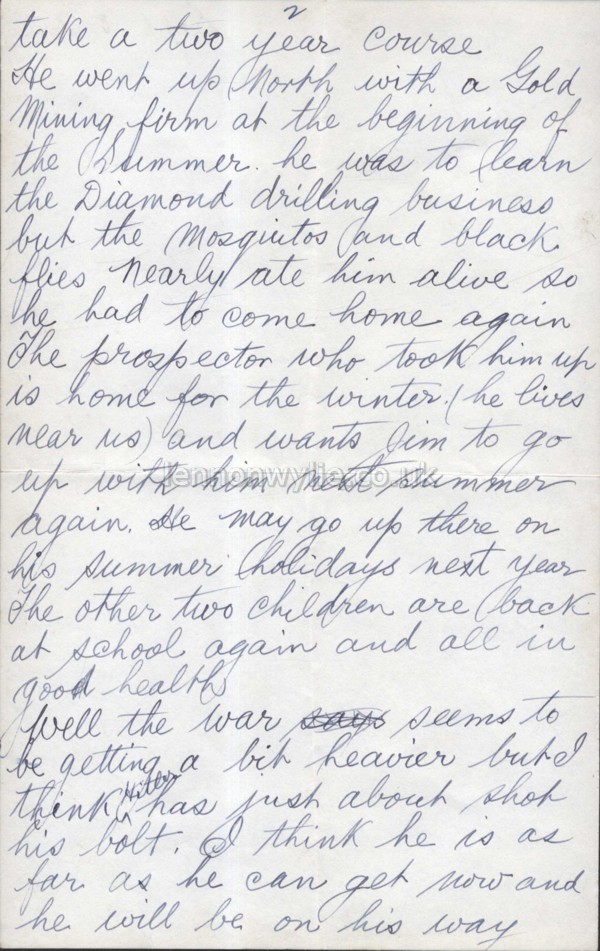 2
take a two year course
He went up North with a Gold
Mining firm at the beginning of
the Summer. he was to learn
the Diamond drilling business
but the Mosquitos and black
flies nearly ate him alive so
he had to come home again
The prospector who took him up
is home for the winter. (he lives
near us) and wants Jim to go
up with him next summer
lennonwylie.co.uk
again. He may go up there on
his summer holidays next year
The other two children are back
at school again and all in
good health
Well the war says seems to
be getting a bit heavier but I
think Hitler has just about shot
his bolt. I think he is as
far as he can get now and
he will be on his way